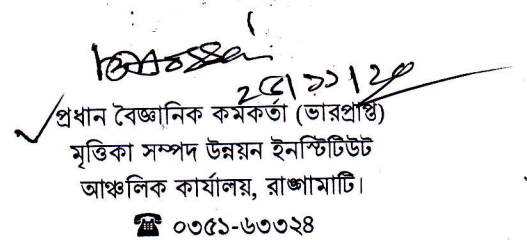 ২৫/১১/২০
প্রধান বৈজ্ঞানিক কর্মকর্তা (ভারপ্রাপ্ত)
মৃত্তিকা সম্পদ উন্নয়ন ইনস্টিটিউট
আঞ্চলিক কার্যালয়, রাঙ্গামাটি।
☎ ০৩৫১-৬৩৩২৪